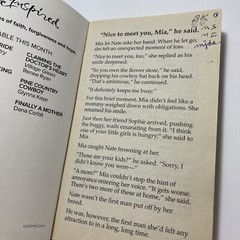 Inspired
of faith, forgiveness and hope
ABLE THIS MONTH
CLAIMING THE
DOCTOR'S HEART
Renee Ryan
PINE COUNTRY
COWBOY
Glynna Kaye
FINALLY A MOTHER
Dana Corbit
"Nice to meet you, Mia," he said.
Mia let Nate take her hand. When he let go,
she felt an unexpected moment of loss.
"Nice to meet you, too," she replied as his
smile deepened.
"So you own the flower store," he said,
dropping his cowboy hat back on his head.
"That's continuous."
"It definitely keeps me busy."
For this brief moment, Mia didn't feel like a
mommy weighed down with obligations. She
returned his smile.
Just then her friend Sophie arrived, pushing
the buggy, wails emanating from it. "I think
one of your little girls is hungry," she said to
Mia.
Mia caught Nate frowning at her.
"Those are your kids?" he asked. "Sorry, I
didn't know you were—"
"A mom?" Mia couldn't stop the hint of
annoyance entering her voice. "It gets worse.
There's two more of these at home," she said.
Nate wasn't the first man put off by her
brood.
He was, however, the first man she'd felt any
attraction to in a long, long time.